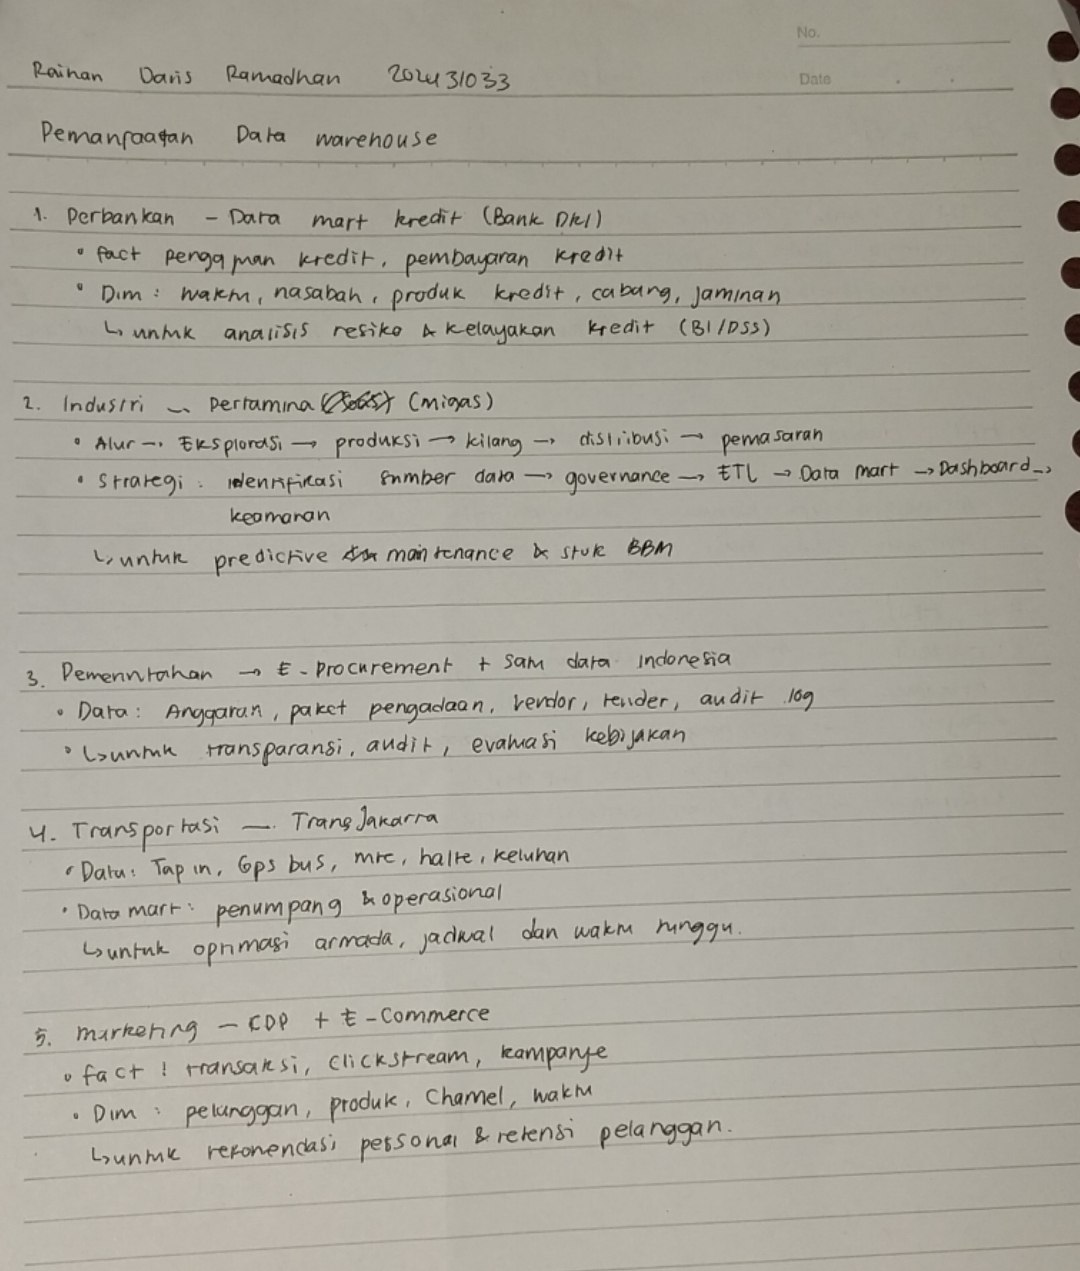 No.
Rainan Daris Ramadhan 202431033
Date
Pemanfaatan Data warehouse
1. Perbankan - Data mart kredit (Bank DKI)
• fact pengajuan kredit, pembayaran kredit
• Dim : waktu, nasabah, produk kredit, cabang, jaminan
↳ untuk analisis resiko & kelayakan kredit (BI/DSS)
2. Industri → Pertamina (Migas)
• Alur → Eksplorasi → produksi → kilang → distribusi → pemasaran
• Strategi : identifikasi sumber data → governance → ETL → Data mart → Dashboard →
keamanan
↳ untuk predictive maintenance & stok BBM
3. Pemerintahan → E-Procurement + Satu data Indonesia
• Data : Anggaran, paket pengadaan, vendor, tender, audit log
• ↳ untuk transparansi, audit, evaluasi kebijakan
4. Transportasi — TransJakarta
• Data : Tap in, Gps bus, mrt, halte, keluhan
• Data mart : penumpang & operasional
↳ untuk optimasi armada, jadwal dan waktu tunggu.
5. marketing - CDP + E-Commerce
• fact : transaksi, clickstream, kampanye
• Dim : pelanggan, produk, Channel, waktu
↳ untuk rekomendasi personal & retensi pelanggan.